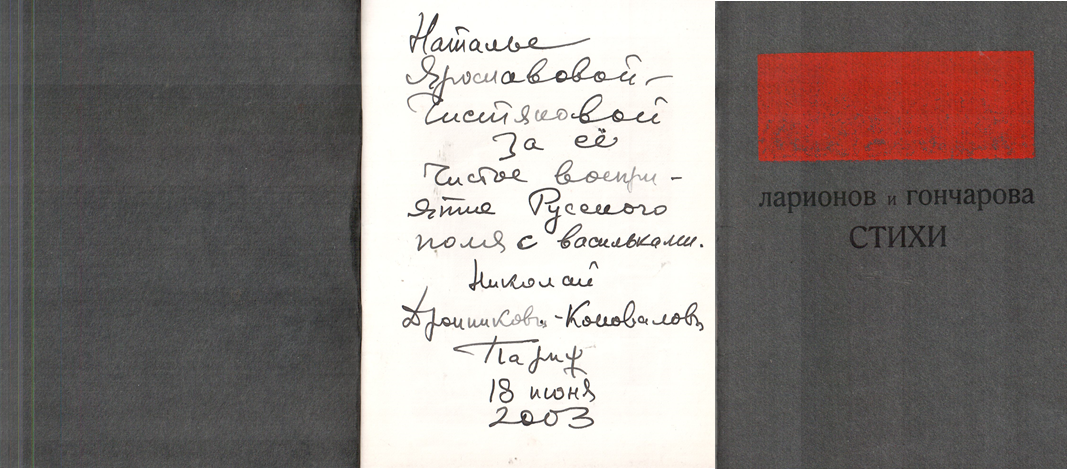 Наталье
Ярославовой-
Чистяковой
За её
Чистое воспри-
ятие Русского
поля с васильками.
Николай
Дронниковъ-Коноваловъ
Париж
18 июня
2003
ларионов и гончарова
СТИХИ